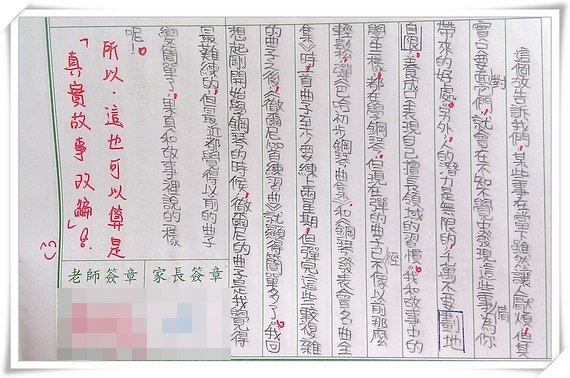 這個故告訴我們，某些事在當下雖然讓人厭煩，但其
實只要對它們，就會在不知不覺中發現這些事為你
帶來的好處。另外，人的潛力是無限的，千萬不要劃地
自限，養成了表現自己擅長領域的習慣。我和故事中的
學生一樣，都在學鋼琴，但現在彈的曲子已經不像以前那麼
輕鬆，彈《巴哈初步鋼琴曲集》和《鋼琴發表會名曲全
集》時，一首曲子至少要練上兩星期，但彈完這些較複雜
的曲子之後，《徹爾尼首練習曲》就顯得簡單多了。我回
想起剛開始學鋼琴的時候，徹爾尼的曲子是我覺得
最難練的，但最近都覺得以前的曲子
變簡單了，果真和故事裡說的一樣
呢！
所以，這也可以算是
「真實故事改編」
老師簽章
家長簽章